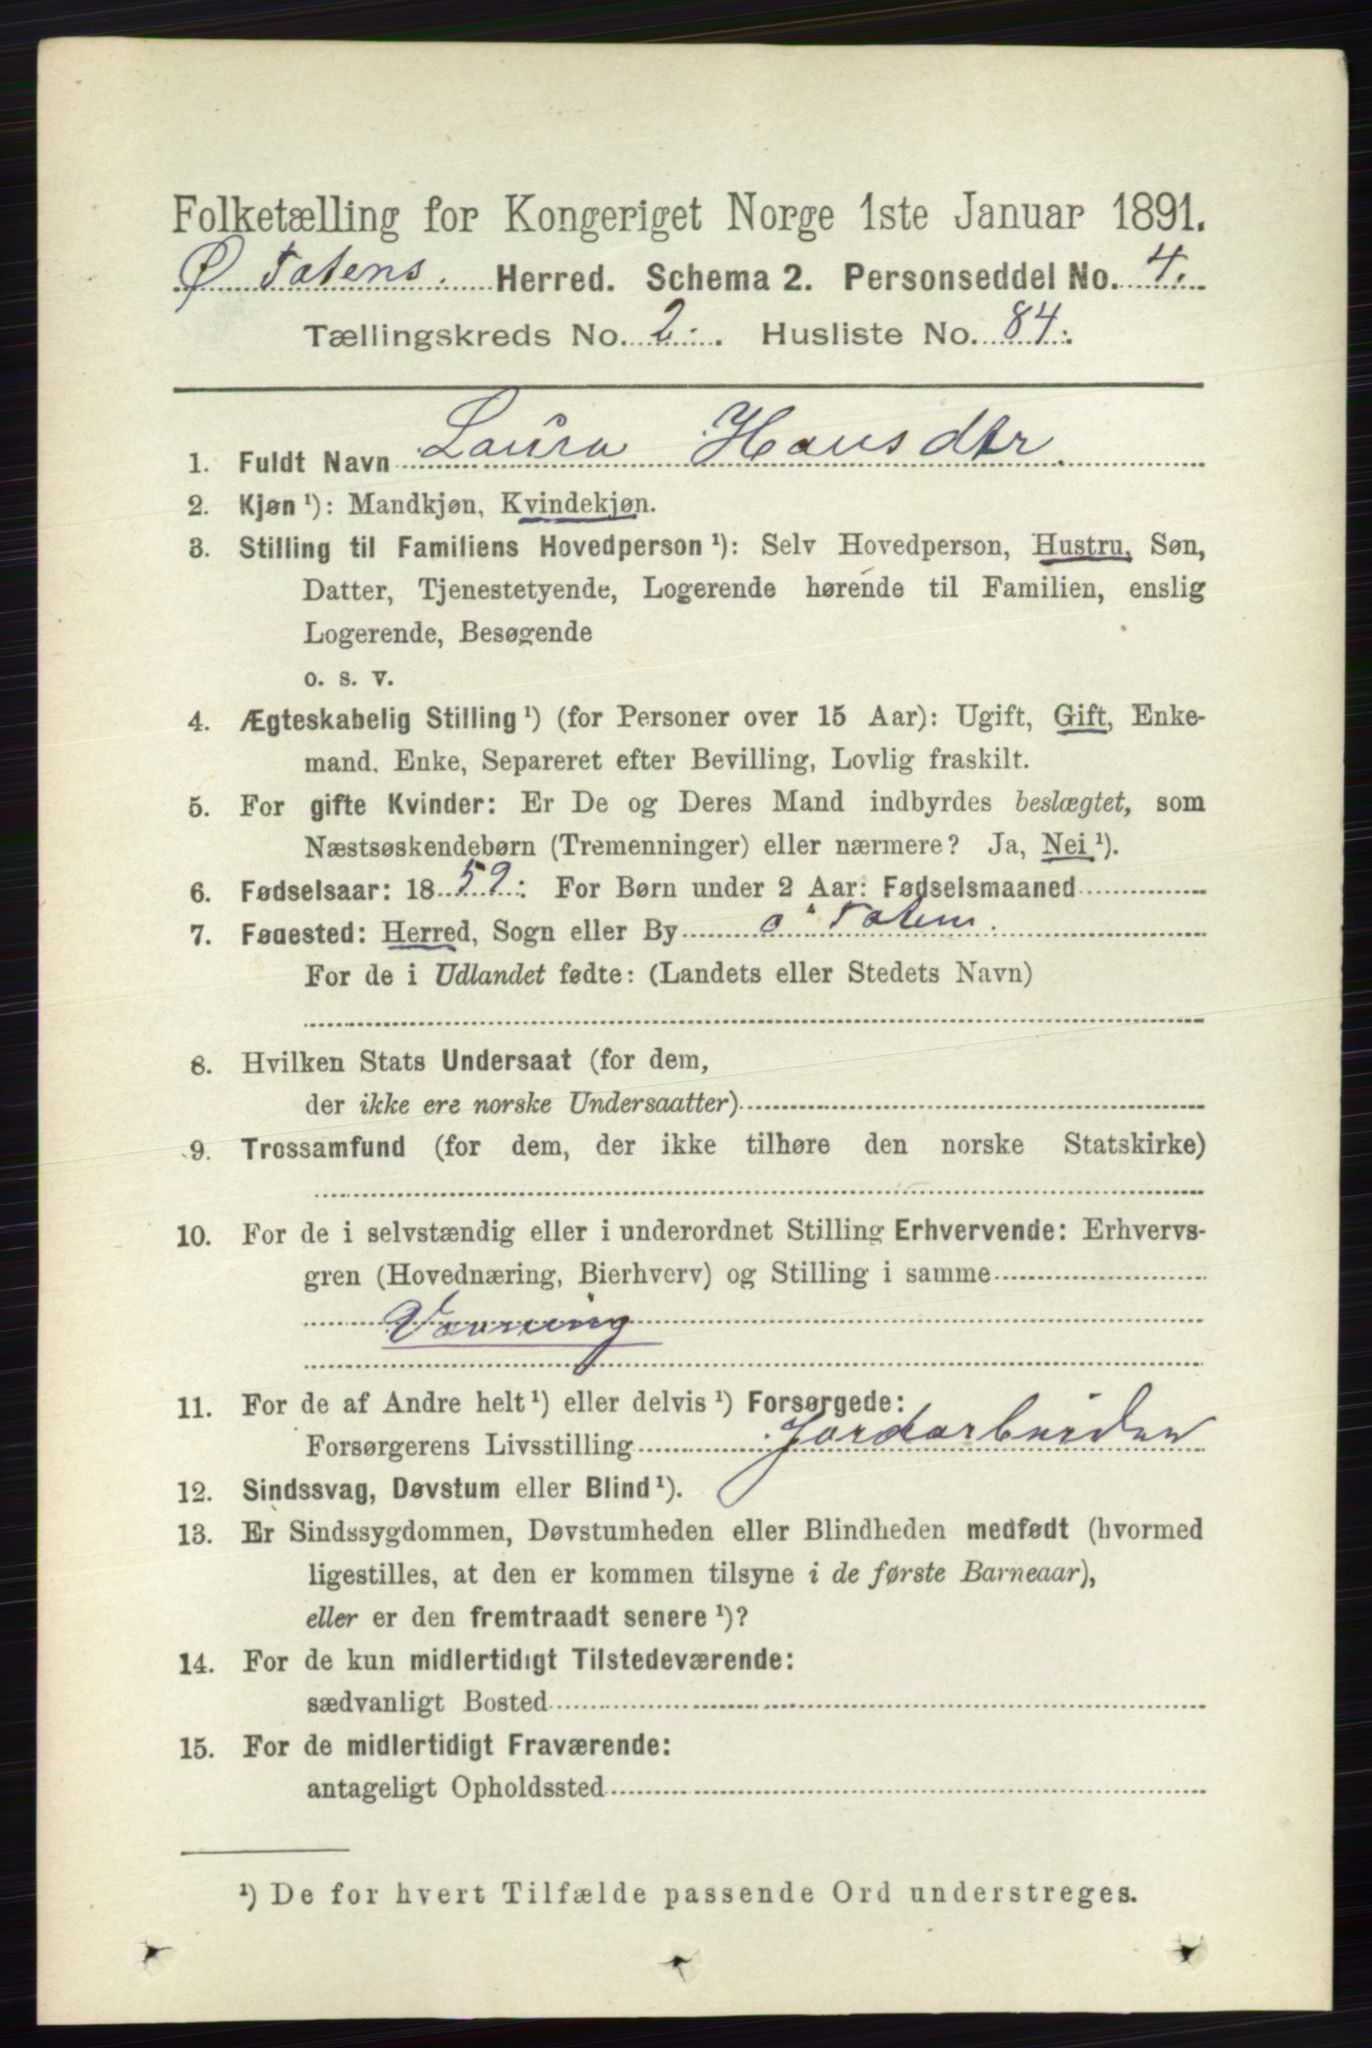 Folketælling for Kongeriget Norge 1ste Januar 1891.
Ø Totens. Herred. Schema 2. Personseddel No. 4.
Tællingskreds No. 2. Husliste No. 84.
1. Fuldt Navn Laura Hansdtr.
2. Kjøn ¹): Mandkjøn, Kvindekjøn.
3. Stilling til Familiens Hovedperson ¹): Selv Hovedperson, Hustru, Søn,
Datter, Tjenestetyende, Logerende hørende til Familien, enslig
Logerende, Besøgende
o. s. v.
4. Ægteskabelig Stilling ¹) (for Personer over 15 Aar): Ugift, Gift, Enke-
mand, Enke, Separeret efter Bevilling, Lovlig fraskilt.
5. For gifte Kvinder: Er De og Deres Mand indbyrdes beslægtet, som
Næstsøskendebørn (Tremenninger) eller nærmere? Ja, Nei ¹).
6. Fødselsaar: 1859: For Børn under 2 Aar: Fødselsmaaned
7. Fødested: Herred, Sogn eller By Ø Toten.
For de i Udlandet fødte: (Landets eller Stedets Navn)
8. Hvilken Stats Undersaat (for dem,
der ikke ere norske Undersaatter)
9. Trossamfund (for dem, der ikke tilhøre den norske Statskirke)
10. For de i selvstændig eller i underordnet Stilling Erhvervende: Erhvervs-
gren (Hovednæring, Bierhverv) og Stilling i samme
Vævning
11. For de af Andre helt ¹) eller delvis ¹) Forsørgede:
Forsørgerens Livsstilling Jordarbeider
12. Sindssvag, Døvstum eller Blind ¹).
13. Er Sindssygdommen, Døvstumheden eller Blindheden medfødt (hvormed
ligestilles, at den er kommen tilsyne i de første Barneaar),
eller er den fremtraadt senere ¹)?
14. For de kun midlertidigt Tilstedeværende:
sædvanligt Bosted
15. For de midlertidigt Fraværende:
antageligt Opholdssted
¹) De for hvert Tilfælde passende Ord understreges.